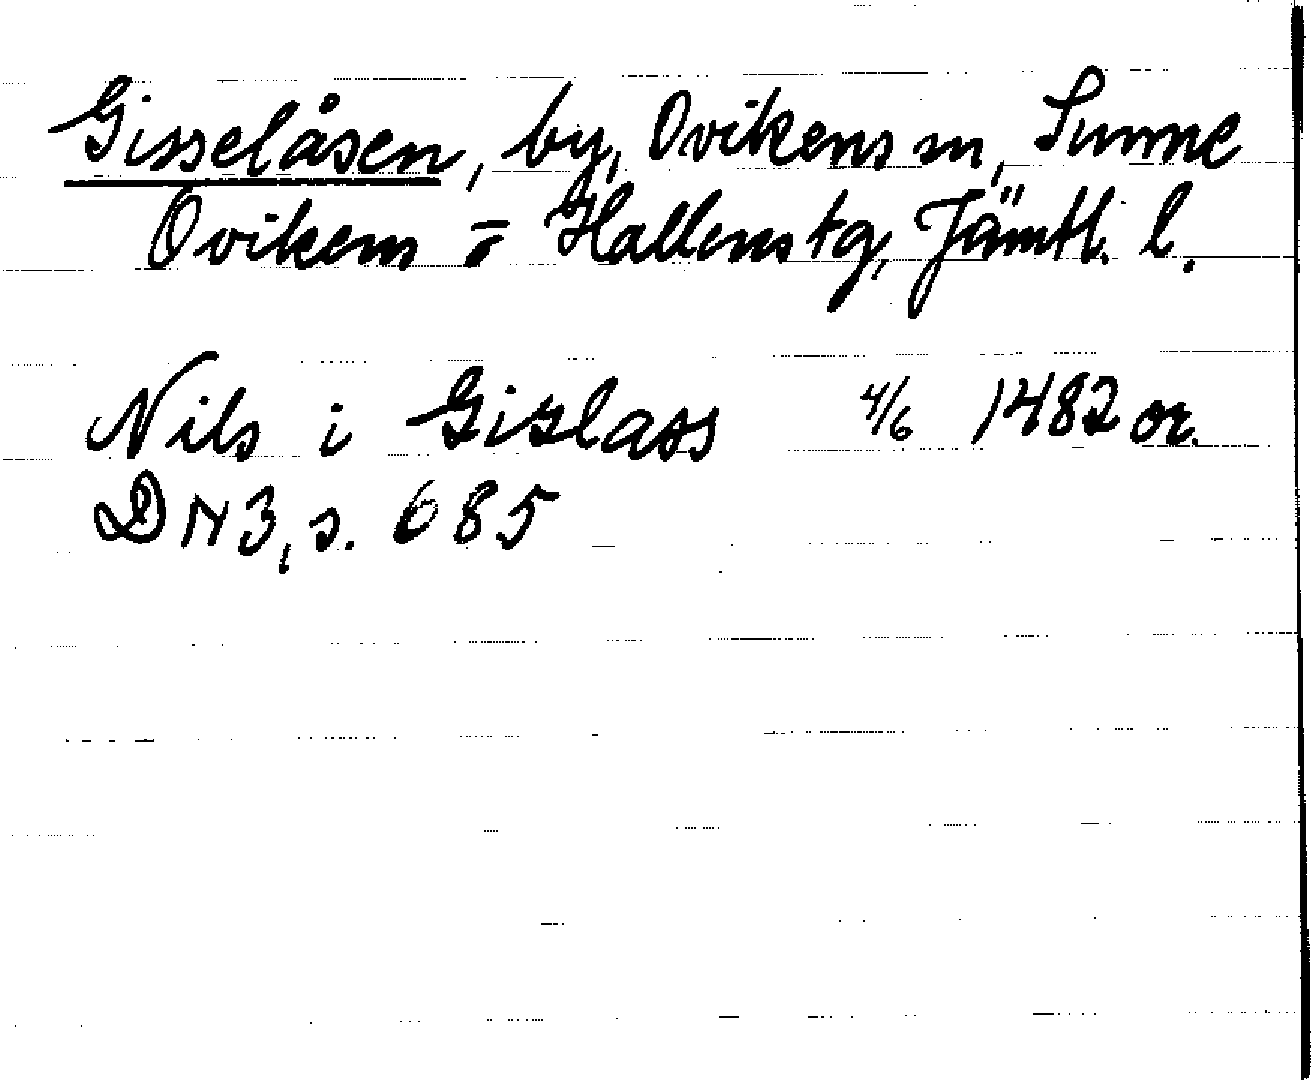 Gisselåsen, by, Ovikens sn, Sunne
Ovikens o Hallens tg, Jämtl. l.
Nils i Gislass 4/6 1482 or.
DN 3, s. 685